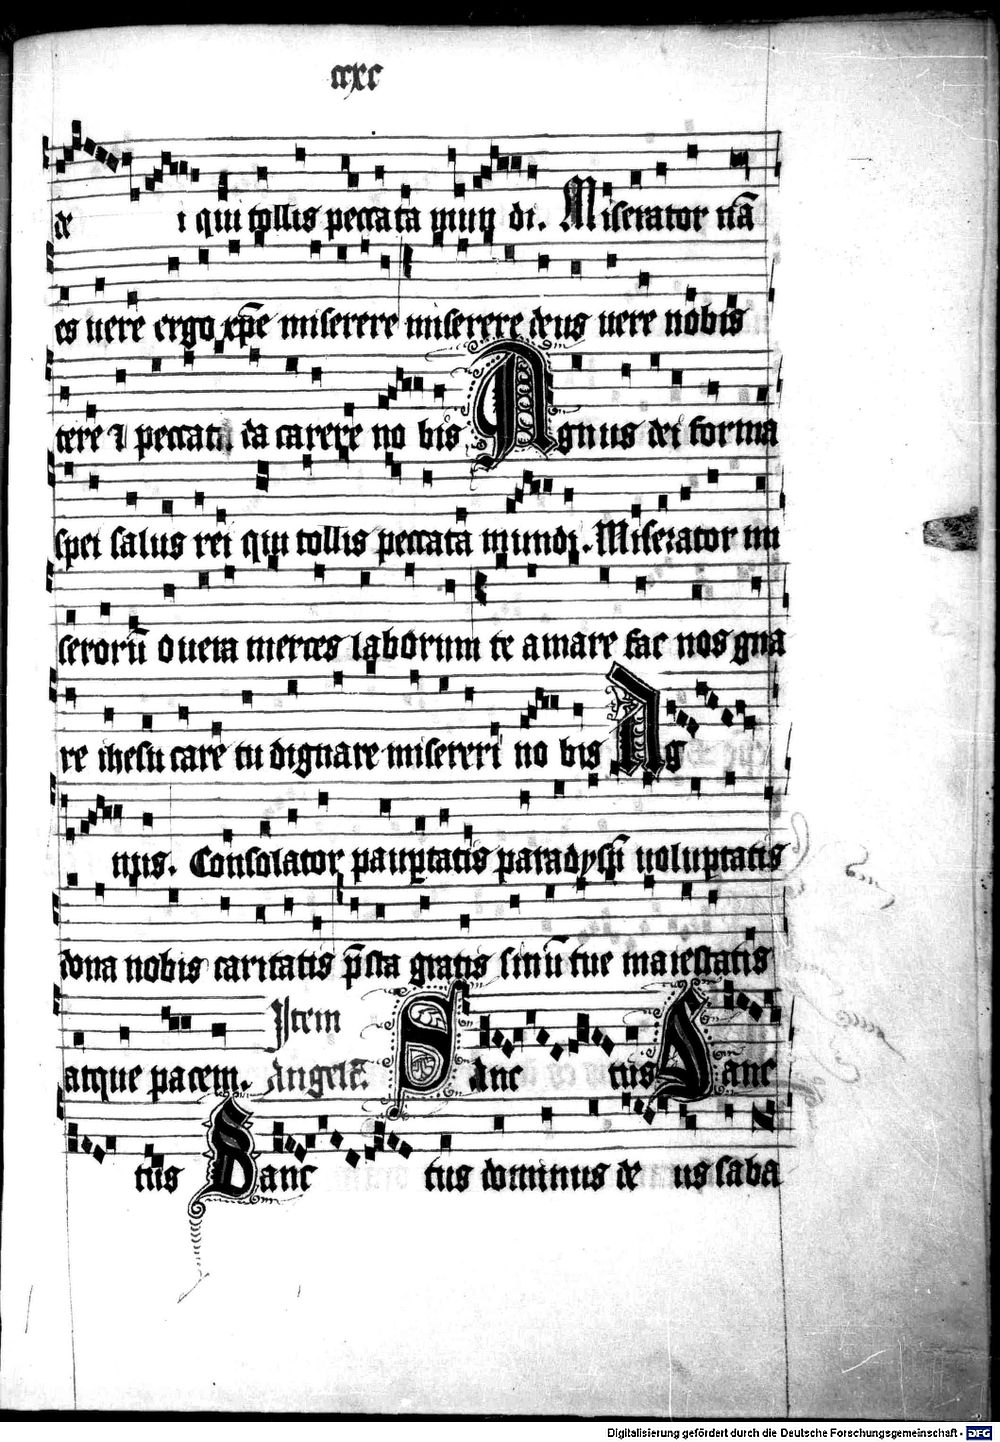 ccxc
de i qui tollis peccata mun di. Miserator nr̄a
es uere ergo xp̄e miserere miserere deus uere nobis
tere ⁊ peccata da carere no bis Agnus dei forma
spei salus rei qui tollis peccata mundi. Miserator mi
serorū O uera merces laborum te amare fac nos gna
re ihesu care tu dignare misereri no bis Ag
nus. Consolator paup̱tatis paradysū uoluptatis
dona nobis caritatis p̄sta gratis sinū tue maiestatis
atque pacem. Item Angelē. Sanc tus Sanc
tus Sanc tus dominus de us saba
Digitalisierung gefördert durch die Deutsche Forschungsgemeinschaft - DFG